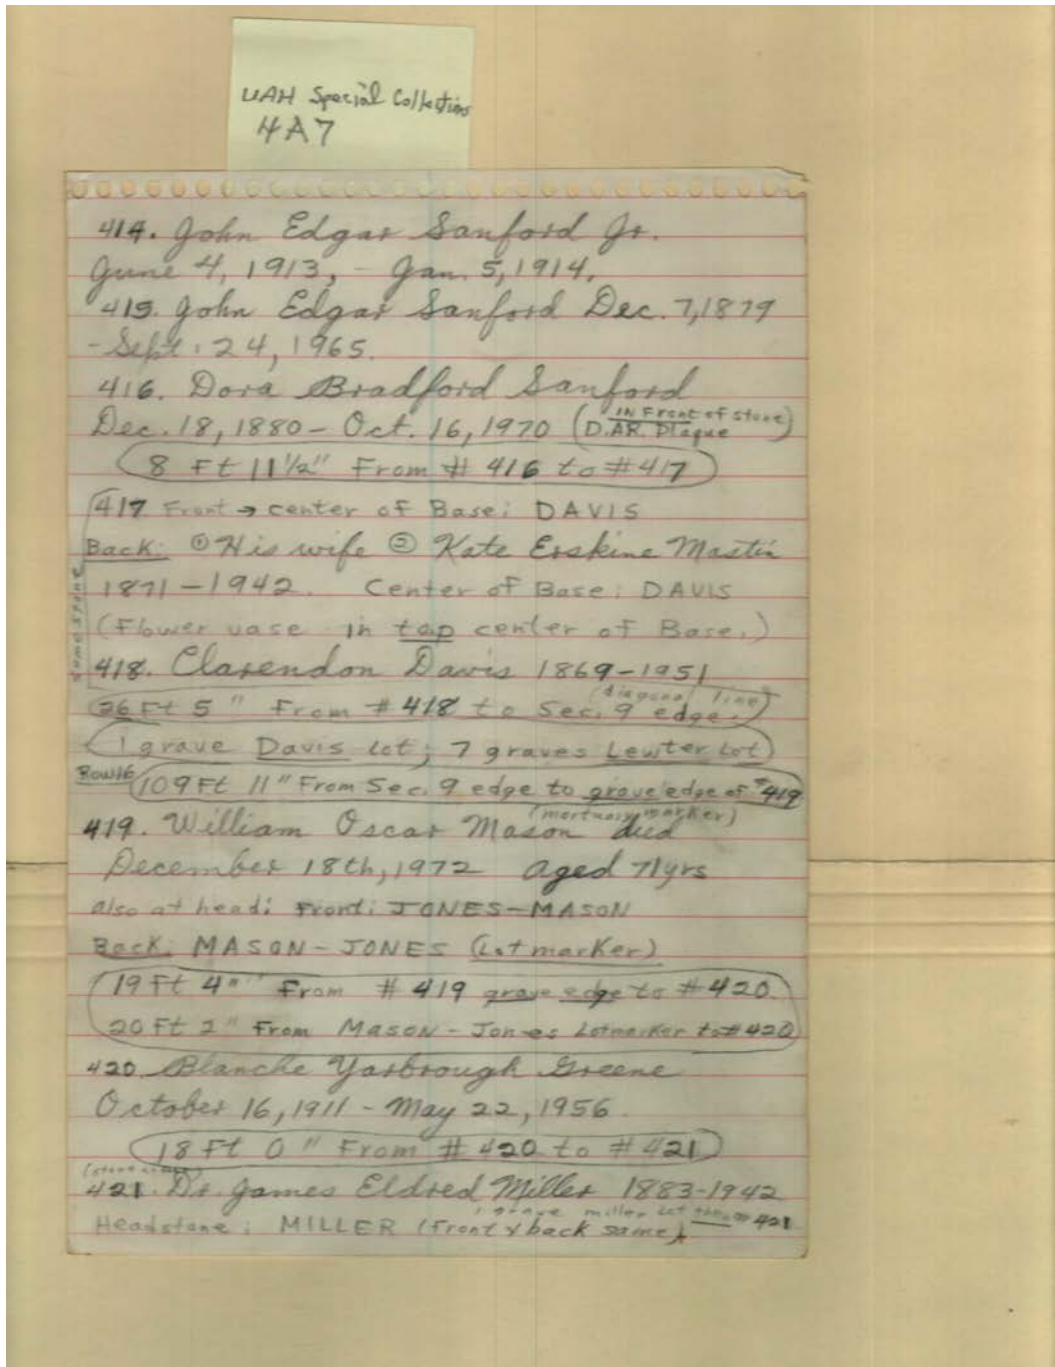 UAH Special Collections
4A7
414. John Edgar Sanford Jr.
June 4, 1913, - Jan. 5, 1914.
415. John Edgar Sanford Dec. 7, 1879
- Sept. 24, 1965.
416. Dora Bradford Sanford
Dec. 18, 1880 - Oct. 16, 1970 (IN Front of stone D.AR. Plaque)
8 Ft 11 1/2" From # 416 to # 417
417 Front → center of Base: DAVIS
Back: ① His wife ② Kate Erskine Mastin
1871-1942. Center of Base: DAVIS
(Flower vase in top center of Base.)
same stone
418. Clarendon Davis 1869-1951
(diagonal line)
26 Ft 5" From # 418 to Sec. 9 edge.
1 grave Davis Lot; 7 graves Lewter Lot
Row 16 109 Ft 11" From Sec. 9 edge to grave edge of #419
(mortuary marker)
419. William Oscar Mason died
December 18th, 1972 aged 71yrs
also at head: Front: JONES-MASON
Back: MASON-JONES (Lot marker)
19 Ft 4" From # 419 grave edge to # 420.
20 Ft 2" From Mason-Jones Lotmarker to # 420
420. Blanche Yarbrough Greene
October 16, 1911 - May 22, 1956.
18 Ft 0" From # 420 to # 421
421. Dr. James Eldred Miller 1883-1942
1 grave miller Lot then # 421
Headstone: MILLER (Front & back same)